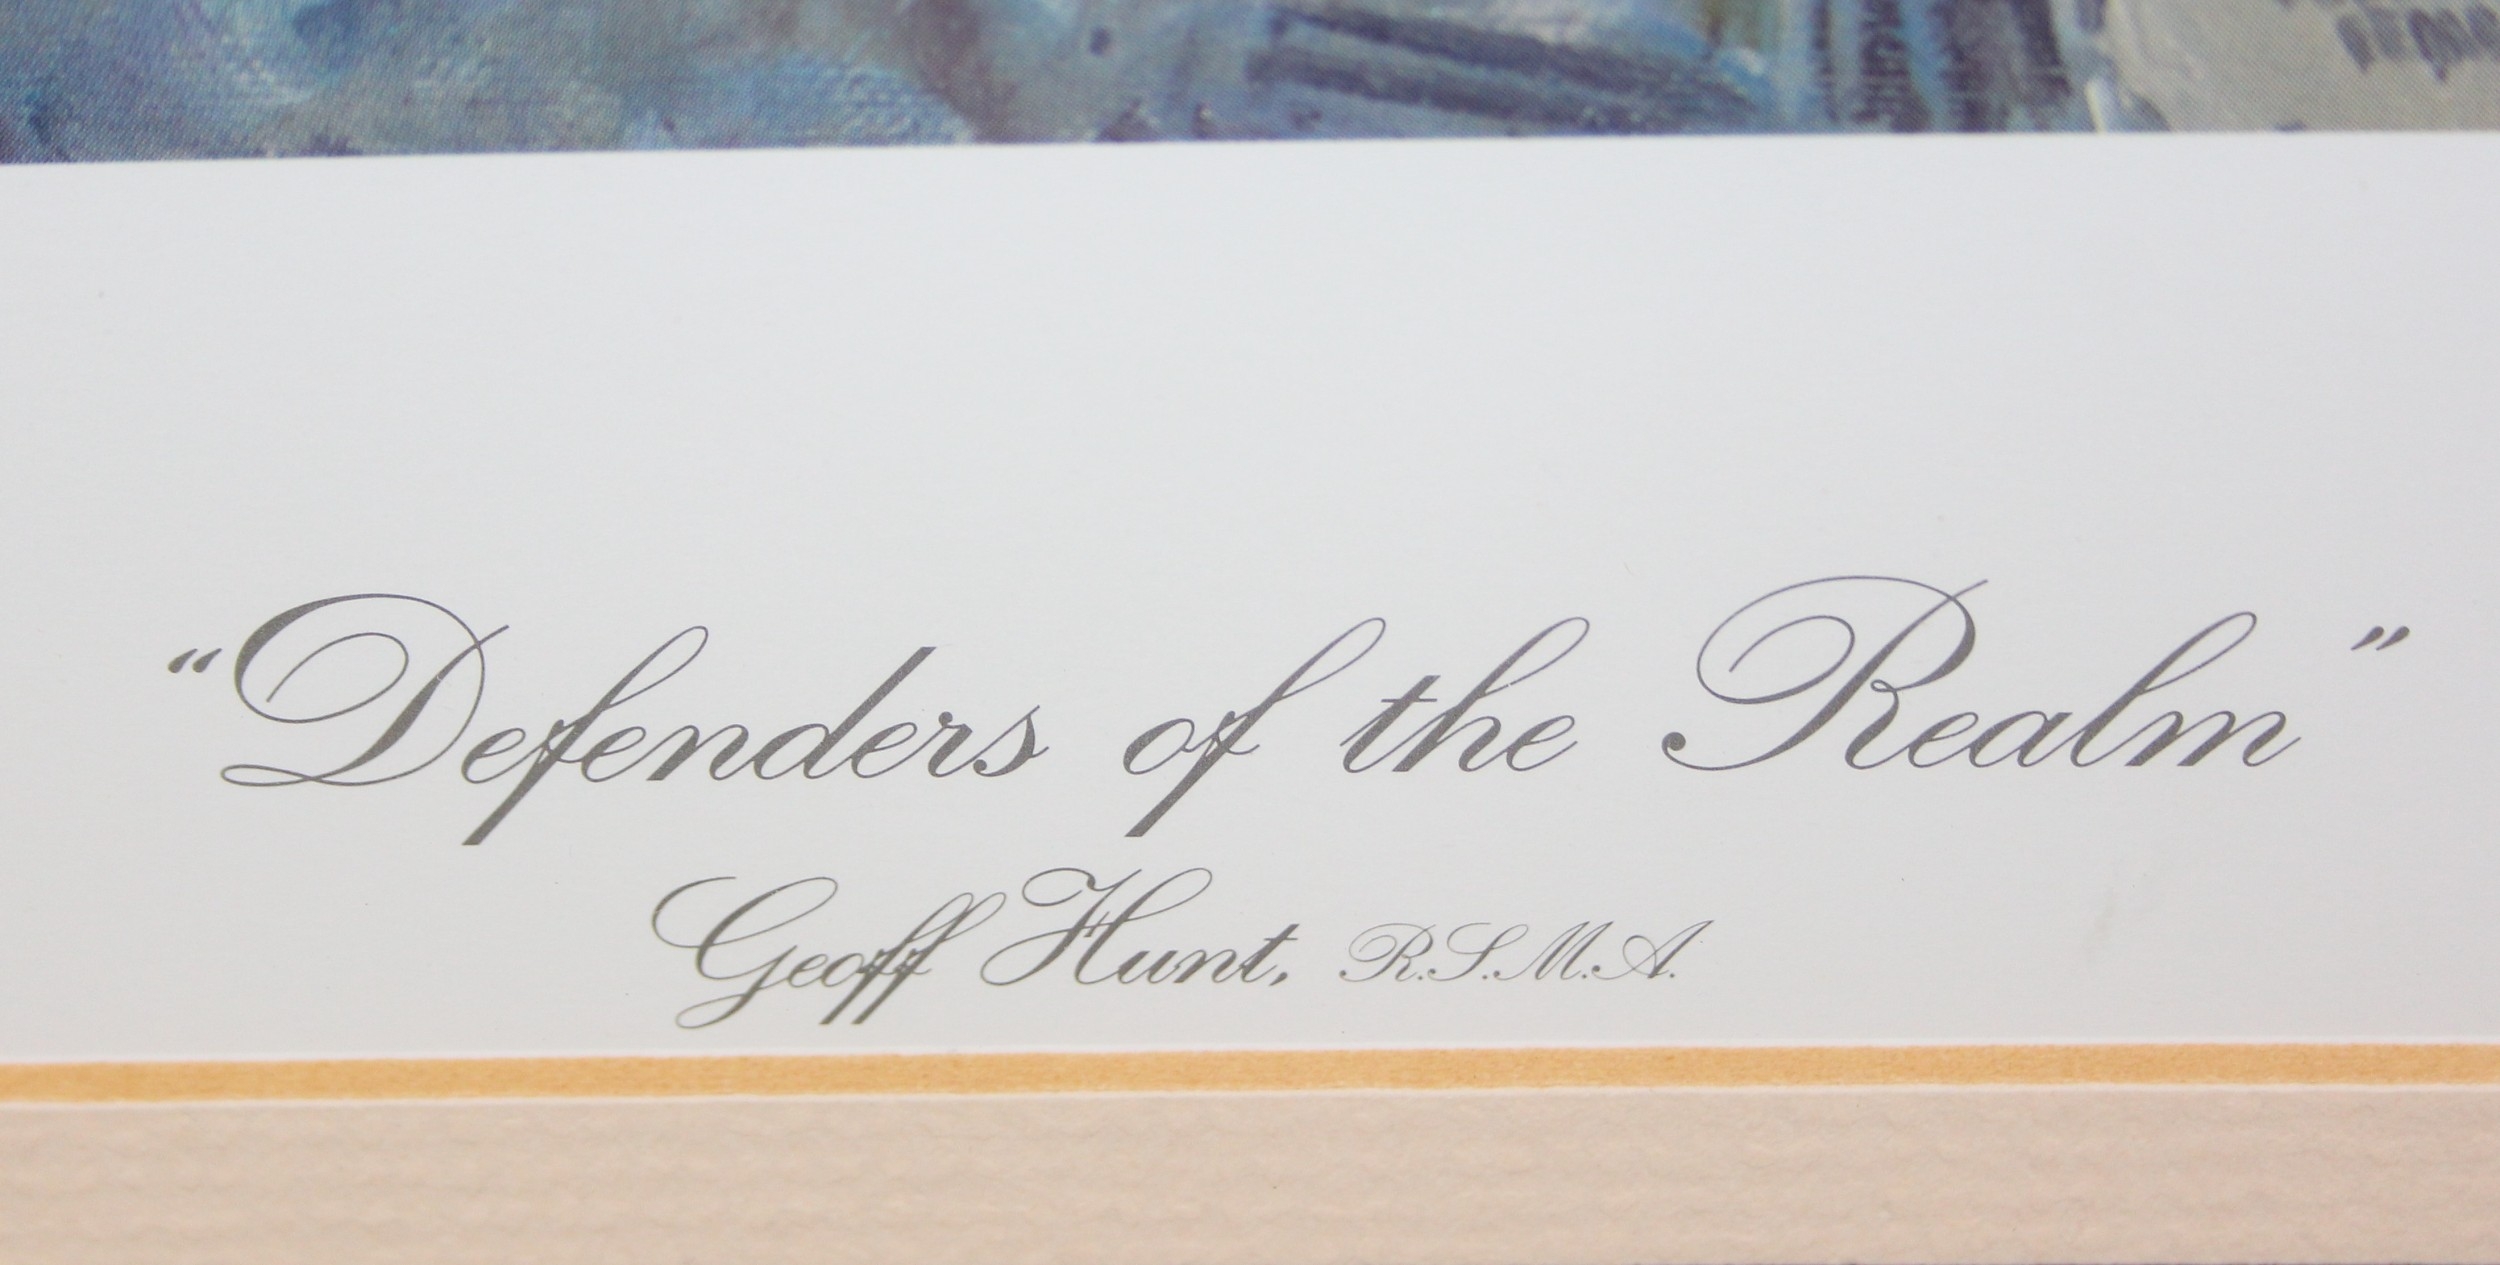 “Defenders of the Realm”
Geoff Hunt, R.S.M.A.